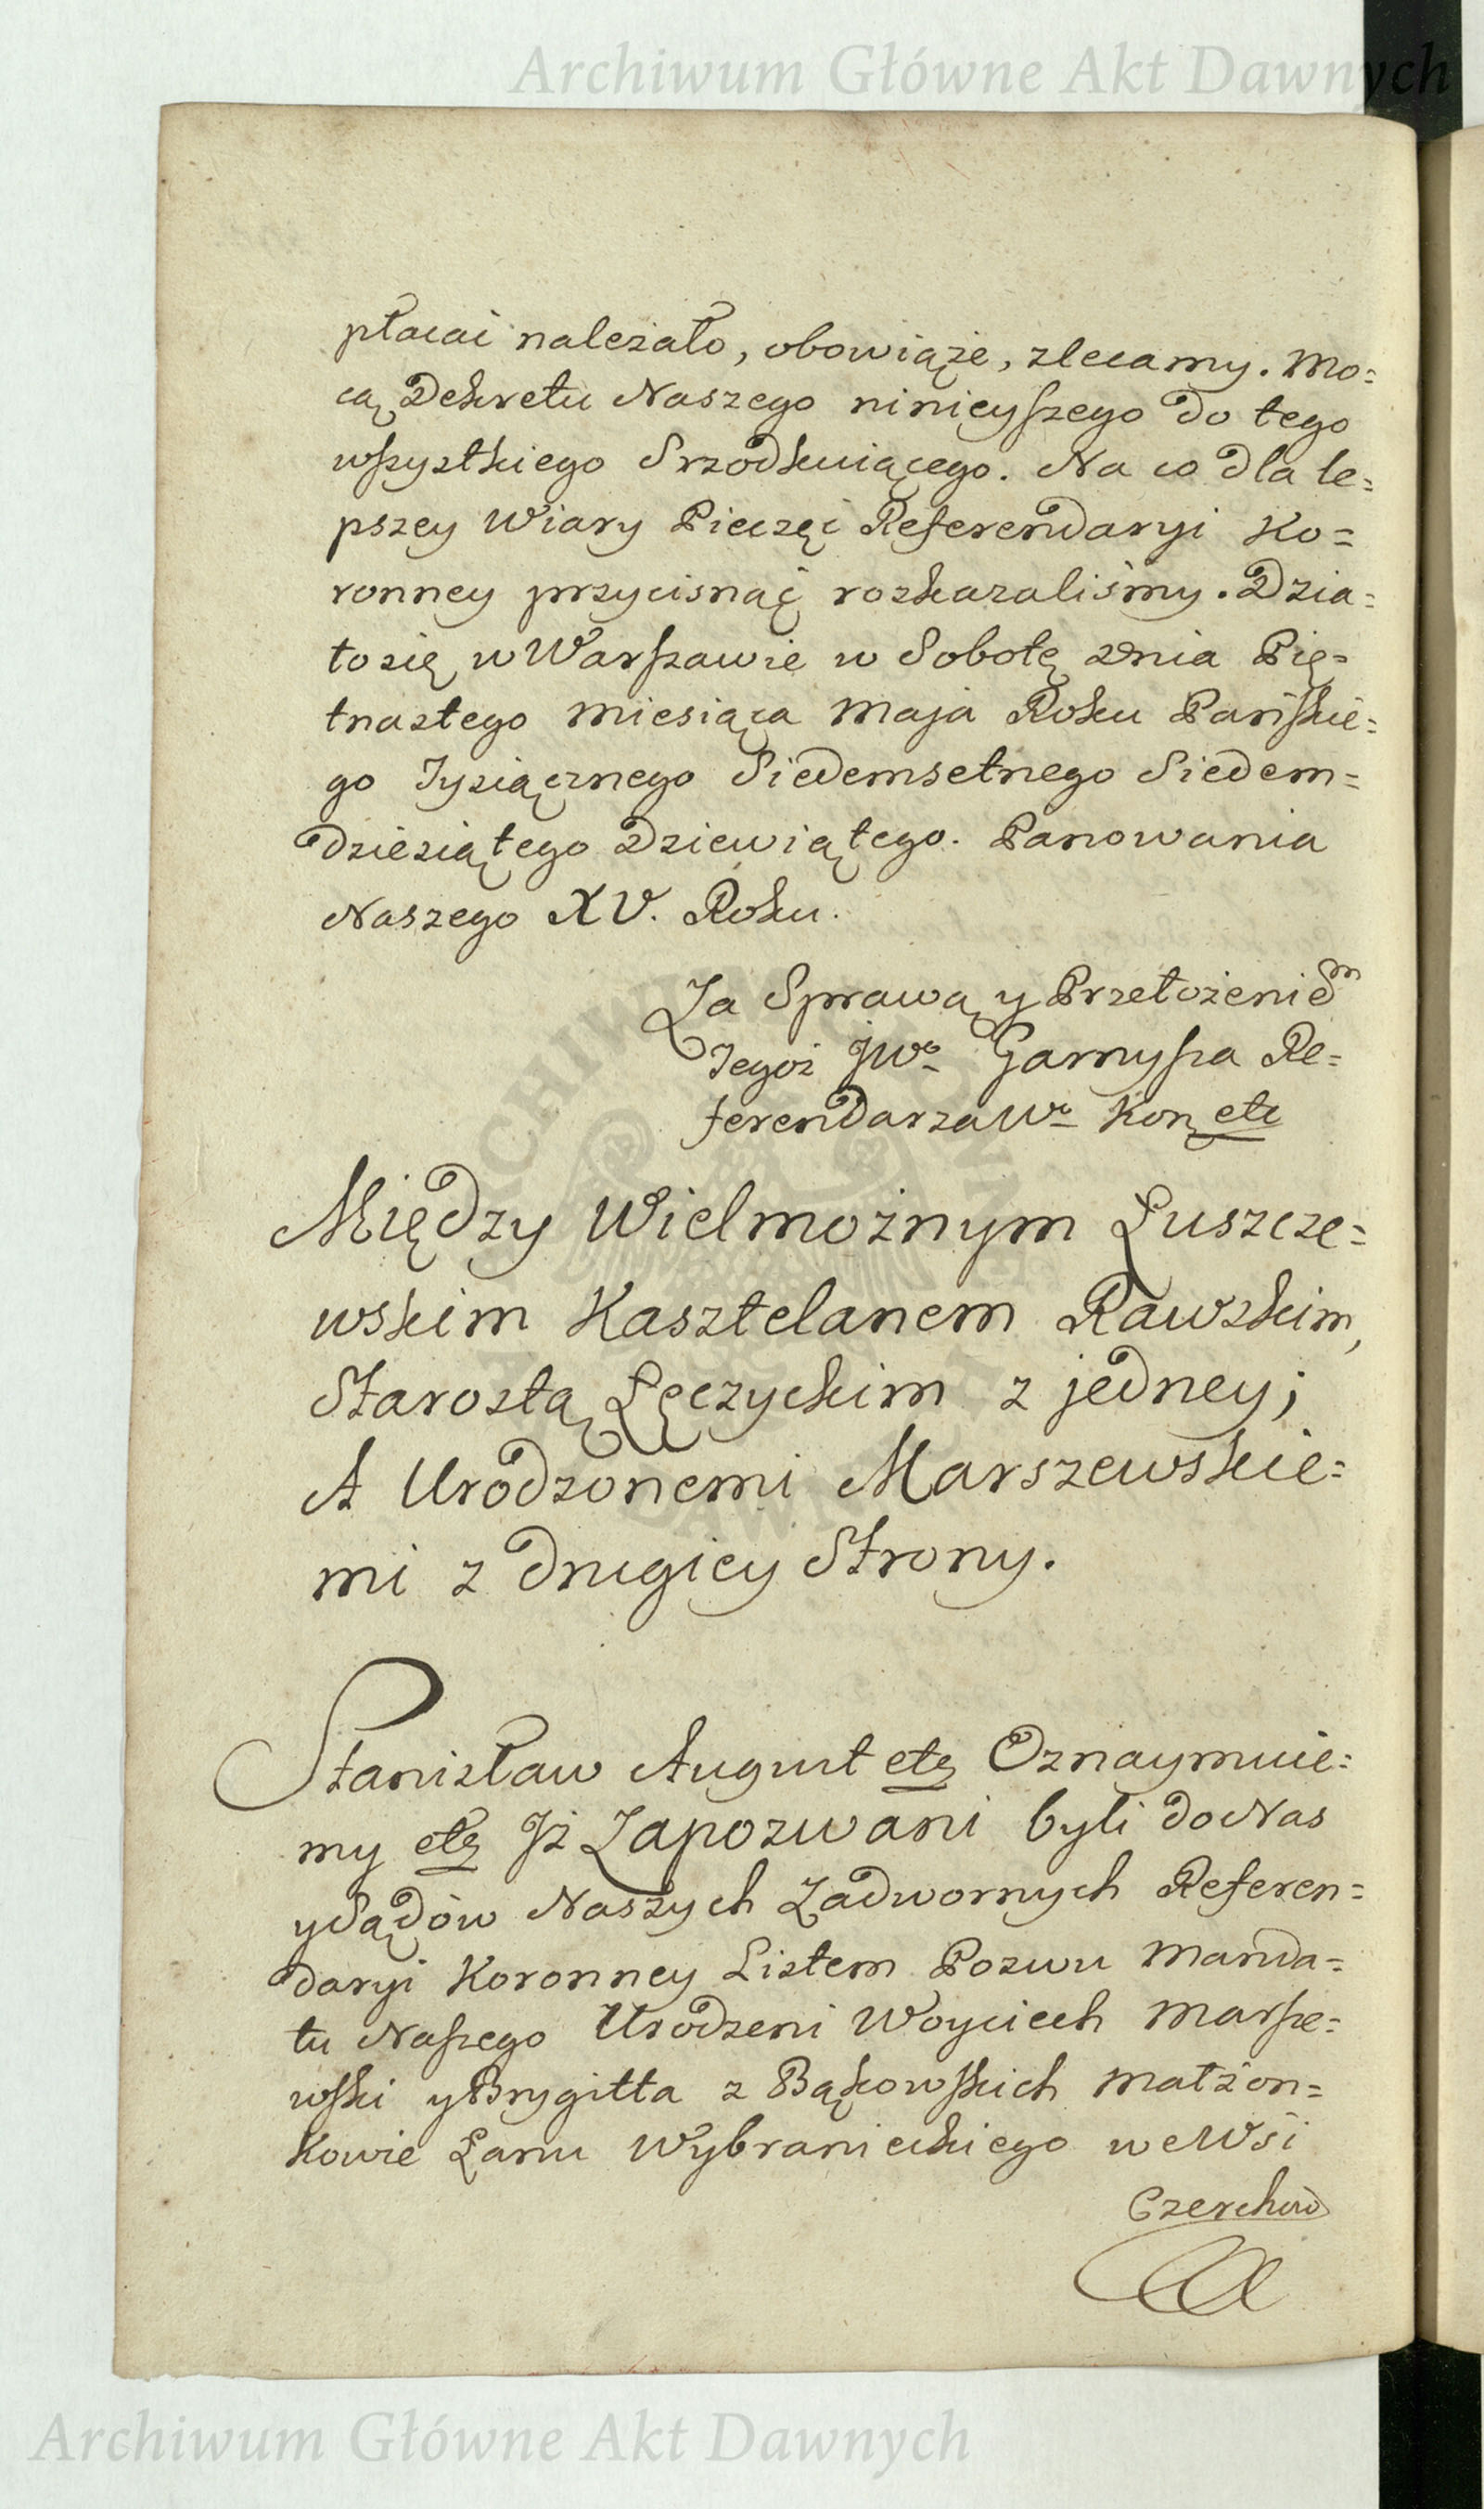 Archiwum Główne Akt Dawnych
płacać należało, obowiąże, zlecamy. Mo=
cą Dekretu Naszego ninieyszego do tego
wszystkiego Srzodkuiącego. Na co dla le=
pszey Wiary Pieczęć Referendaryi Ko=
ronney przycisnąć rozkazaliśmy. Dzia=
ło się w Warszawie w Sobotę Dnia Pię=
tnastego Miesiąca Maja Roku Pańskie=
go Tysiącznego Siedemsetnego Siedem=
dziesiątego Dziewiątego. Panowania
Naszego XV. Roku.
Za Sprawą y Przełożeniem
Tegoż JWo Garnysza Re=
ferendarza Wo Kon etc
Między Wielmożnym Łuszcze=
wskim Kasztelanem Rawskim,
Starostą Łęczyckim z jedney;
A Urodzonemi Marszewskie=
mi z drugiey Strony.
Stanisław August etc Oznaymuie=
my etc Iż Zapozwani byli do Nas
y Sądów Naszych Zadwornych Referen=
daryi Koronney Listem Pozwu Manda=
tu Naszego Urodzeni Woyciech Marsze=
wski y Brygitta z Bąkowskich Małżon=
kowie Łanu Wybranieckiego we Wsi
Czerchow
Archiwum Główne Akt Dawnych